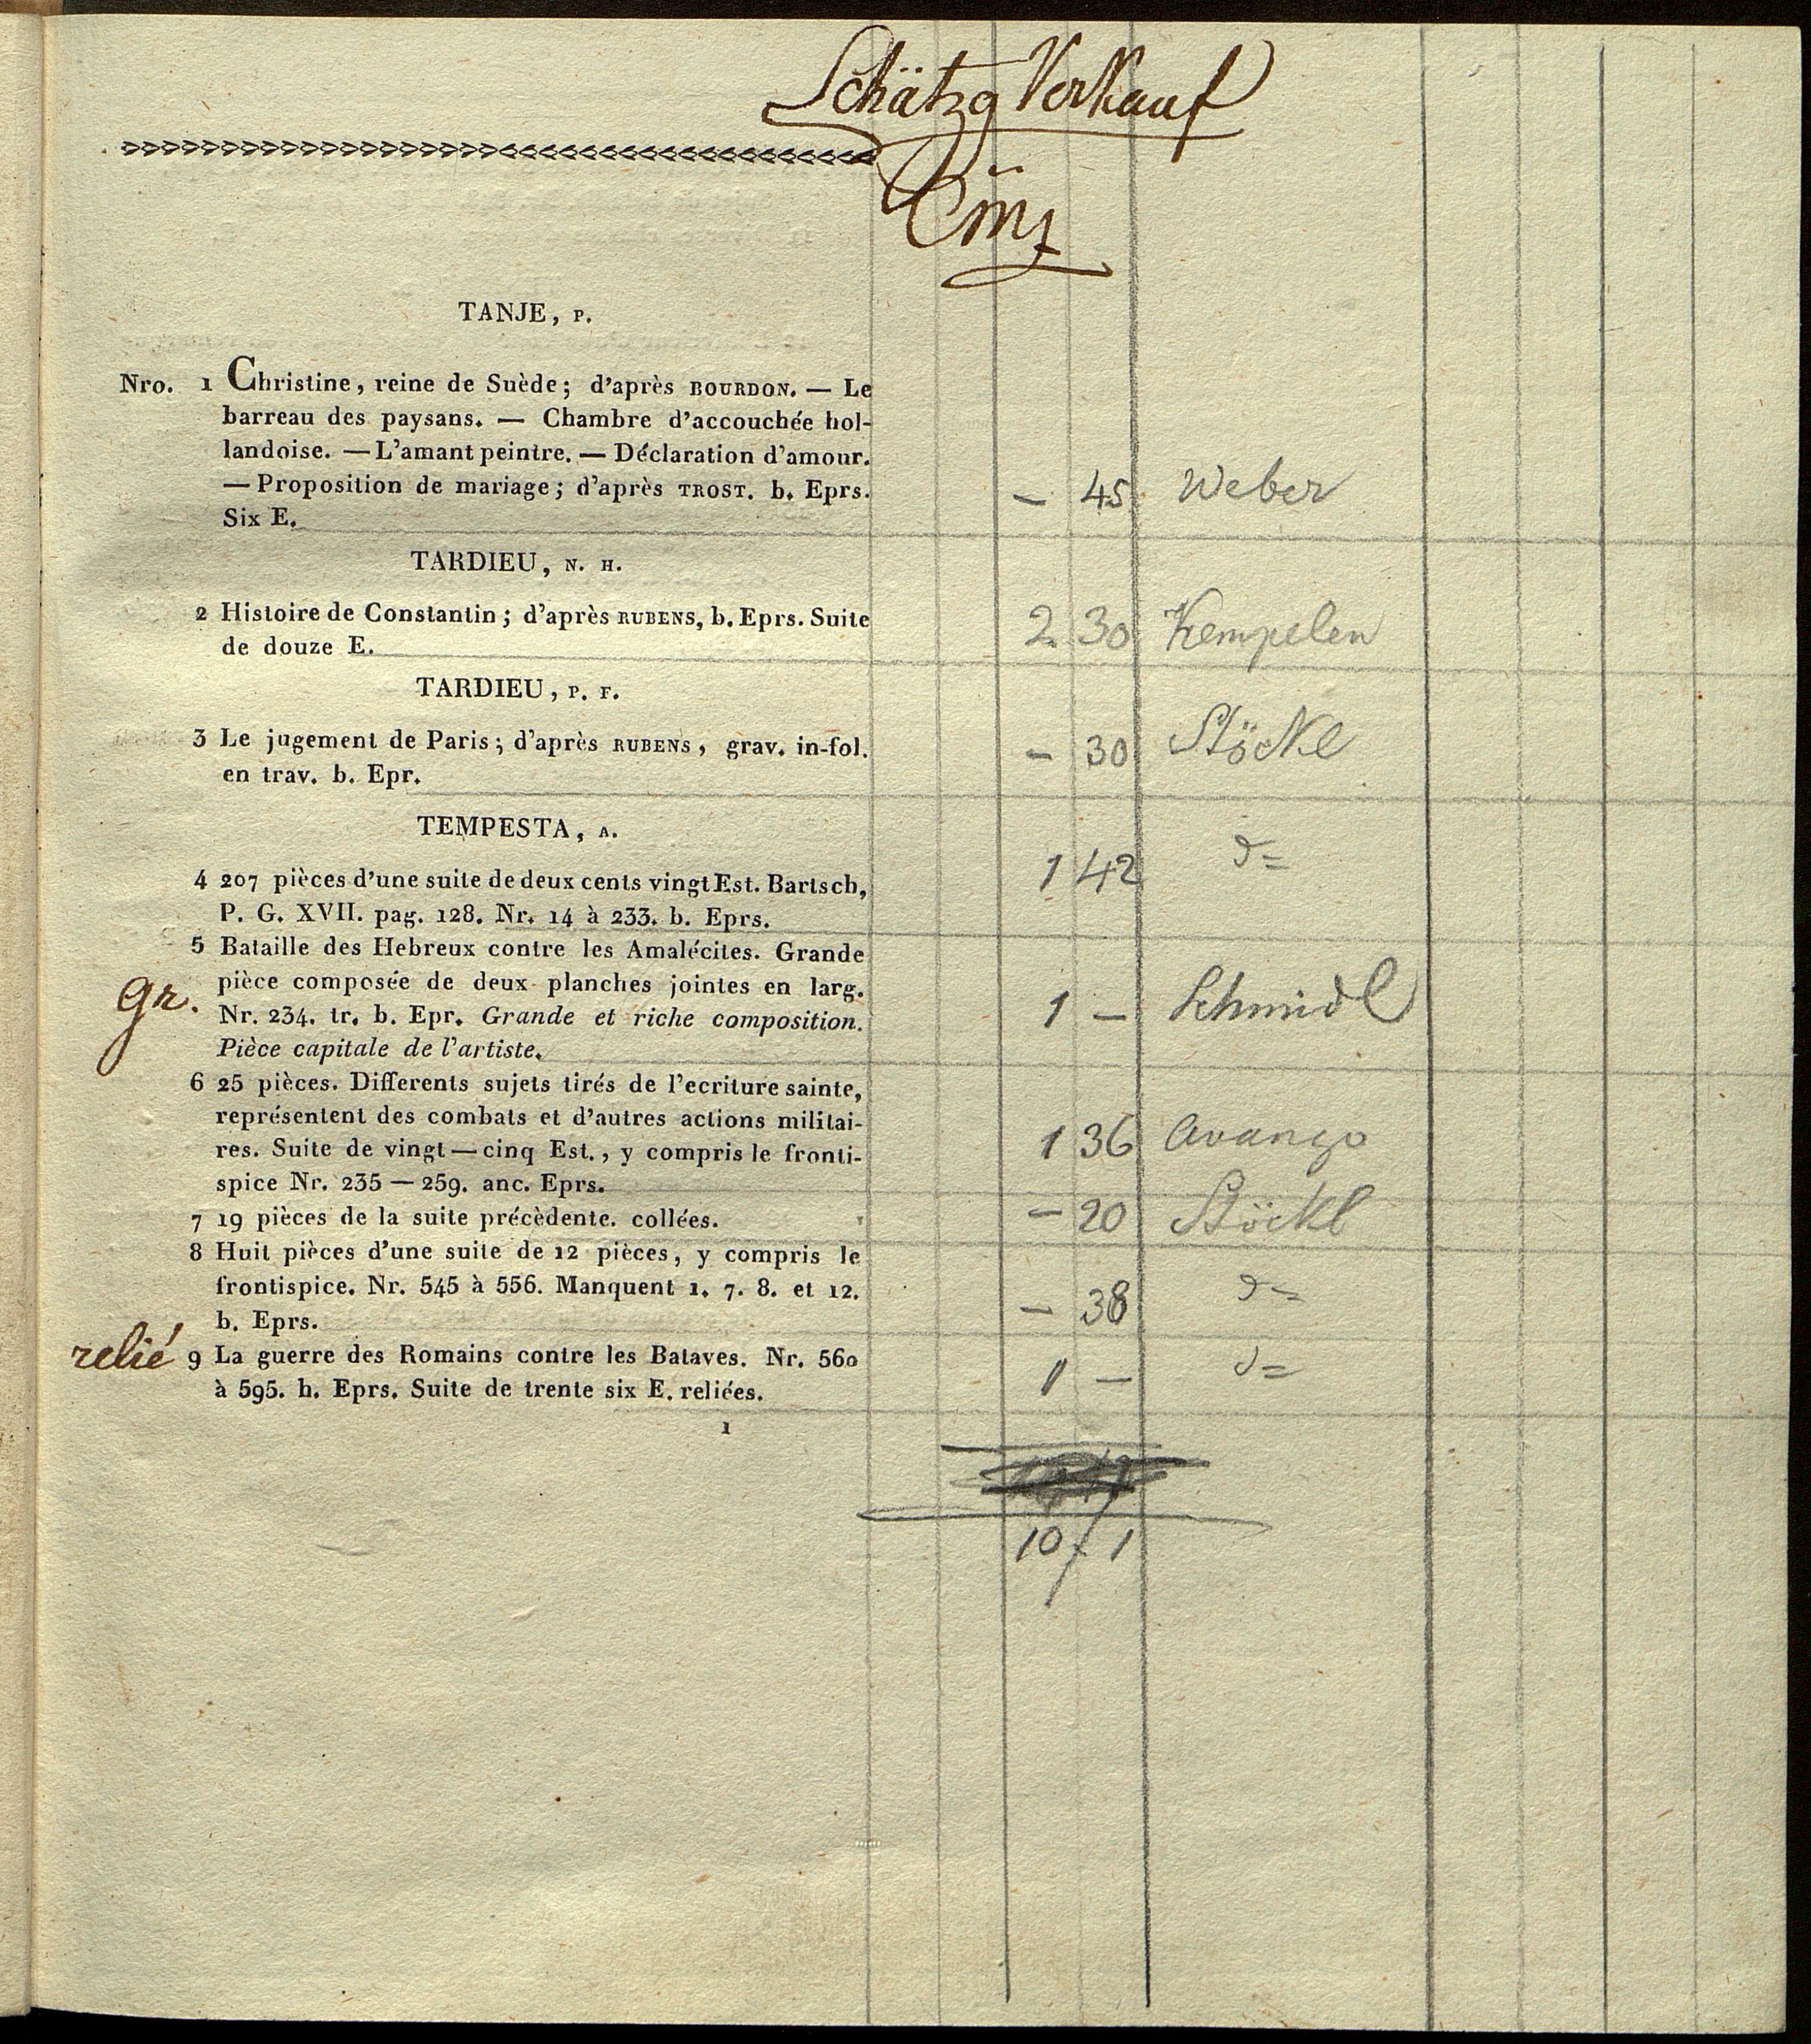 Schätzg Verkauf
TANJE, P.
Nro. 1 Christine, reine de Suède; d'après BOURDON. — Le
barreau des paysans. — Chambre d'accouchée hol-
landoise. — L'amant peintre. — Déclaration d'amour.
— Proposition de mariage; d'après TROST. b. Eprs. — 45 Weber
Six E.
TARDIEU, N. H.
2 Histoire de Constantin; d'après RUBENS, b. Eprs. Suite 2 30 Kempelen
de douze E.
TARDIEU, P. F.
3 Le jugement de Paris; d'après RUBENS, grav. in-fol. — 30 Stöckl
en trav. b. Epr.
TEMPESTA, A.
4 207 pièces d'une suite de deux cents vingt Est. Bartsch, 1 42 d=
P. G. XVII. pag. 128. Nr. 14 à 233. b. Eprs.
5 Bataille des Hebreux contre les Amalécites. Grande
gr. pièce composée de deux planches jointes en larg.
Nr. 234. tr. b. Epr. Grande et riche composition. 1 — Schmidl
Pièce capitale de l'artiste.
6 25 pièces. Differents sujets tirés de l'ecriture sainte,
représentent des combats et d'autres actions militai-
res. Suite de vingt — cinq Est., y compris le fronti- 1 36 Avanzo
spice Nr. 235 — 259. anc. Eprs.
7 19 pièces de la suite précèdente. collées. — 20 Stöckl
8 Huit pièces d'une suite de 12 pièces, y compris le
frontispice. Nr. 545 à 556. Manquent 1. 7. 8. et 12. — 38 d=
b. Eprs.
relié 9 La guerre des Romains contre les Bataves. Nr. 560 1 — d=
à 595. b. Eprs. Suite de trente six E. reliées.
1
10 / 1